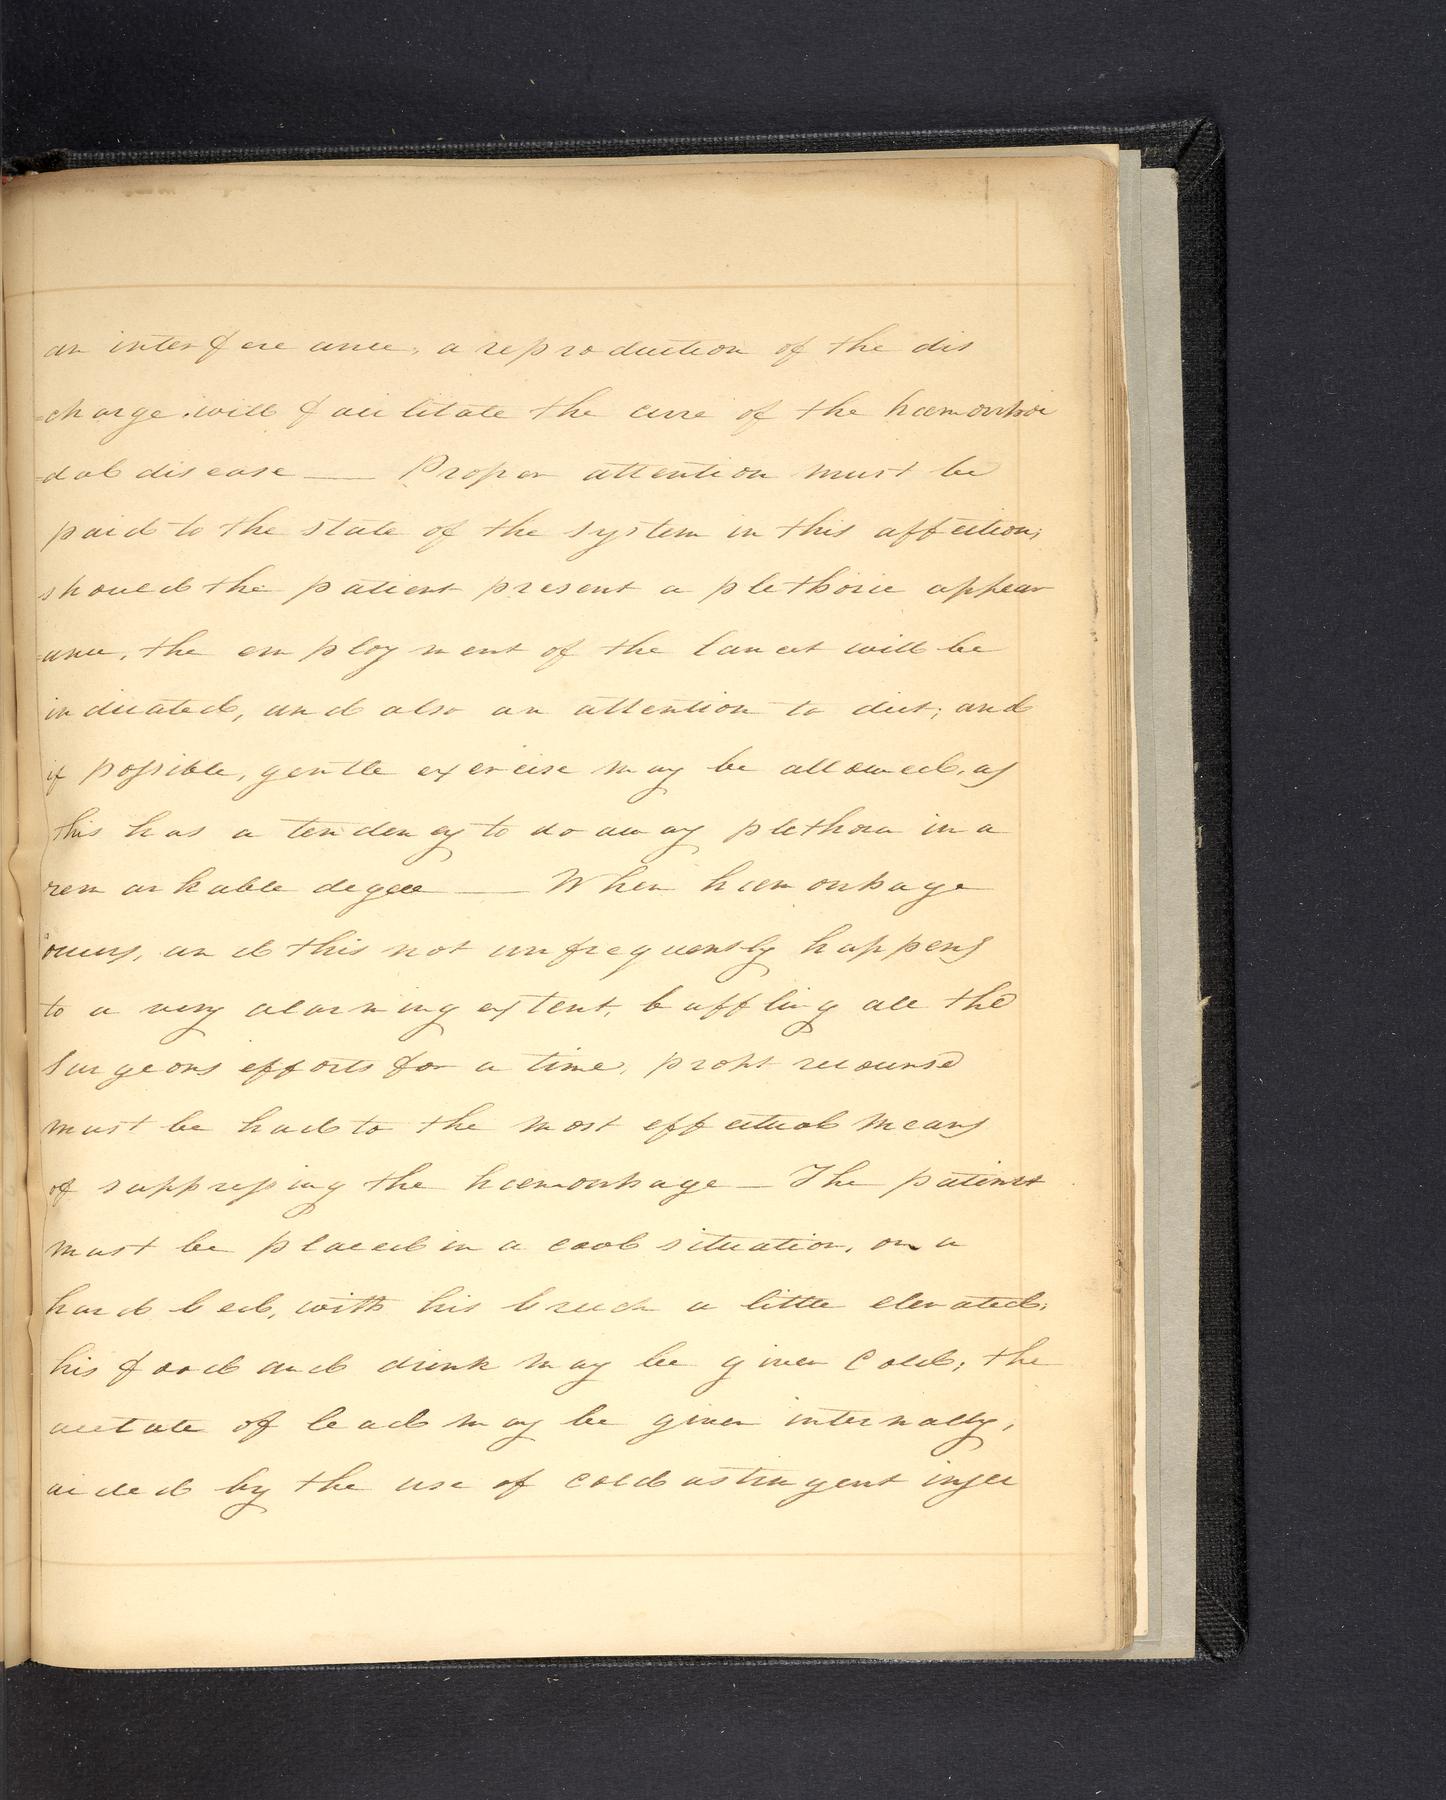 an interfereance, a reproduction of the dis
=charge will facilitate the cure of the hœmorrhoi
=dal disease — Proper attention must be
paid to the state of the system in this affection;
should the patient present a plethoric appear
=ance, the employment of the lancet will be
indicated, and also an attention to diet; and
if possible, gentle exercise may be allowed, as
this has a tendency to do away plethora in a
remarkable degree — When hœmorrhage
occurs, and this not unfrequently happens
to a very alarming extent, baffling all the
Surgeons efforts for a time, recourse
must be had to the most effectual means
of suppressing the hœmorrhage — The patient
must be placed in a cool situation, on a
hard bed, with his breech a little elevated;
his food and drink may be given cold; the
acetate of lead may be given internally,
aided by the use of cold astringent injec